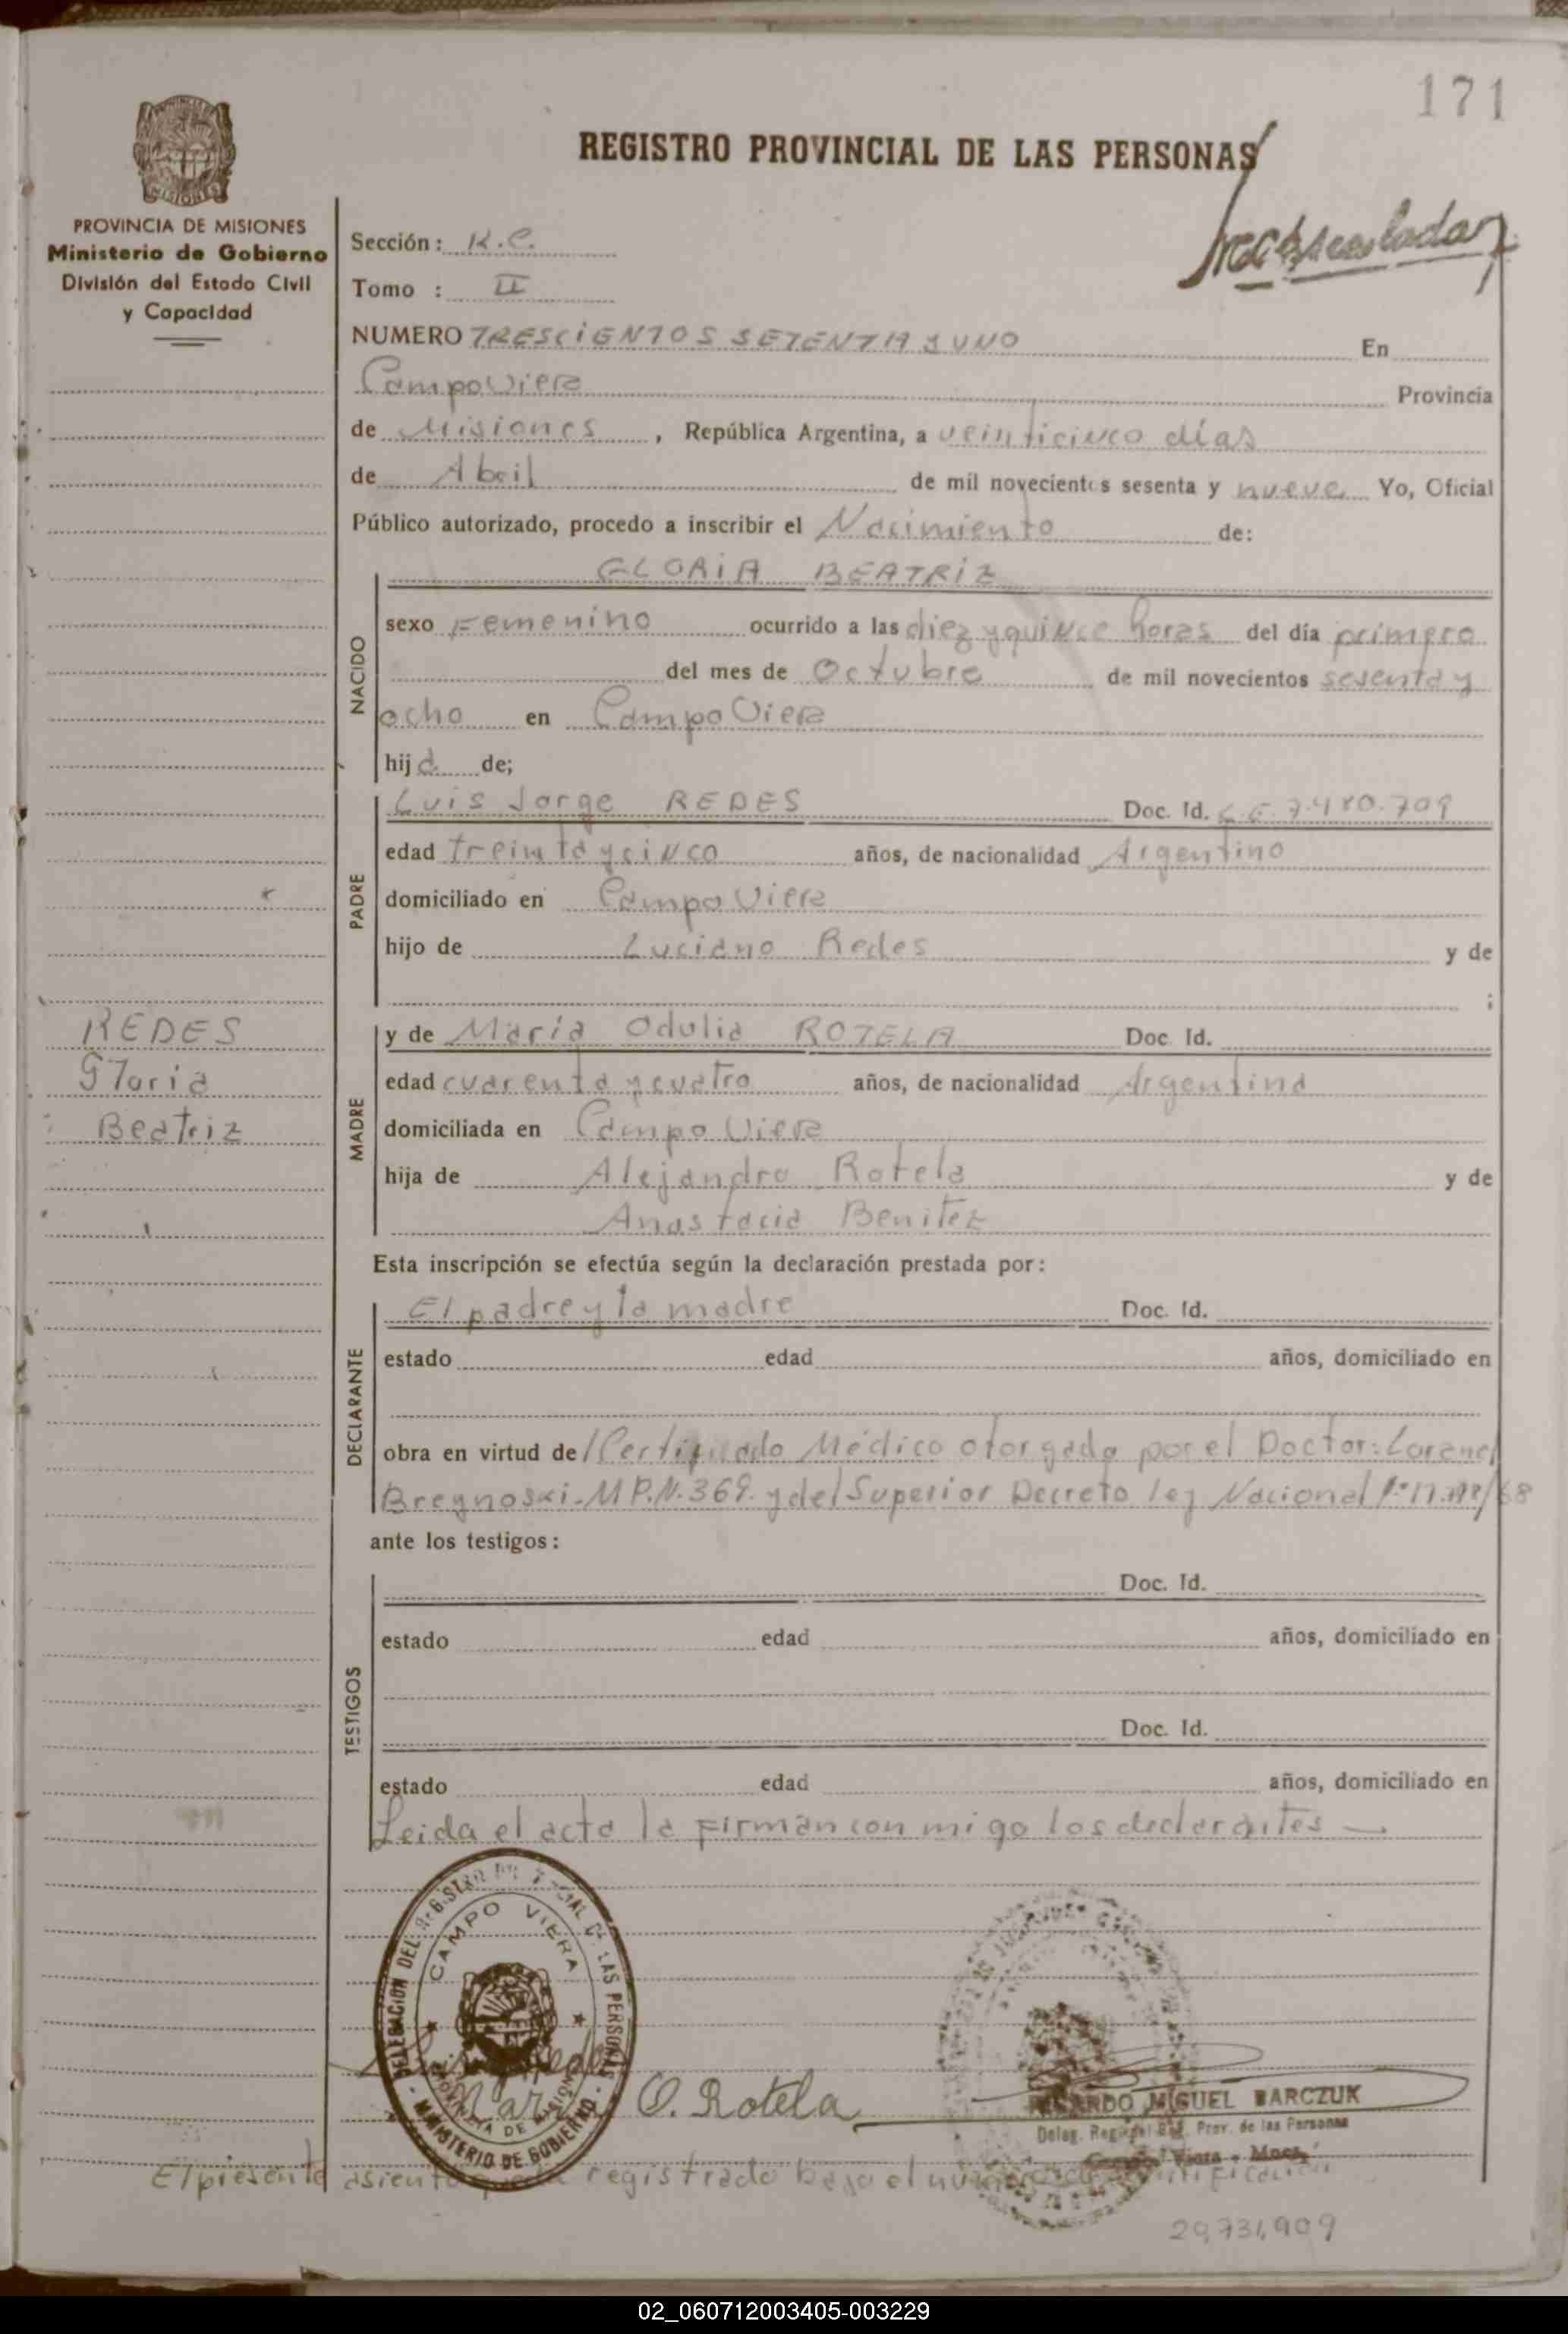 171
REGISTRO PROVINCIAL DE LAS PERSONAS
MISIONES
PROVINCIA DE MISIONES
Ministerio de Gobierno
División del Estado Civil
y Capacidad
Sección: K.C.
Tomo : II
NUMERO TRESCIENTOS SETENTA y UNO En
Campo Viera Provincia
de Misiones, República Argentina, a veinticinco días
de Abril de mil novecientos sesenta y nueve Yo, Oficial
Público autorizado, procedo a inscribir el Nacimiento de:
GLORIA BEATRIZ
NACIDO
sexo Femenino ocurrido a las diez y quince horas del día primero
del mes de Octubre de mil novecientos sesenta y
ocho en Campo Viera
hija de;
PADRE
Luis Jorge REDES Doc. Id. 7.480.709
edad treinta y cinco años, de nacionalidad Argentino
domiciliado en Campo Viera
hijo de Luciano Redes y de
;
REDES
Gloria
Beatriz
MADRE
y de María Odulia ROTELA Doc. Id.
edad cuarenta y cuatro años, de nacionalidad Argentina
domiciliada en Campo Viera
hija de Alejandro Rotela y de
Anastacia Benitez
Esta inscripción se efectúa según la declaración prestada por:
DECLARANTE
El padre y la madre Doc. Id.
estado edad años, domiciliado en
obra en virtud de/Certificado Médico otorgado por el Doctor: Lorenc
Breynoski-M P.N.369. y del Superior Decreto ley Nacional /68
ante los testigos:
TESTIGOS
Doc. Id.
estado edad años, domiciliado en
Doc. Id.
estado edad años, domiciliado en
Leida el acta la firman con migo los declarantes —
DELEGACION DEL REGISTRO PROVINCIAL DE LAS PERSONAS
CAMPO VIERA
PROVINCIA DE MISIONES
MINISTERIO DE GOBIERNO
O. Rotela
MIGUEL BARCZUK
Deleg. Reg. Prov. de las Personas
El presente asiento registrado bajo el
29,731,909
02_060712003405-003229